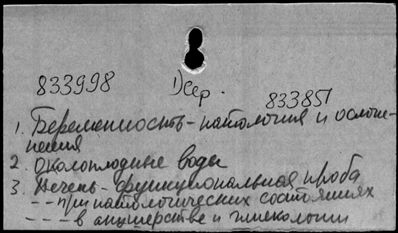 833998 Дсер. 833851
1. Беременность - патология и ослож-
нения
2. Околоплодные воды
3. Печень - функциональная проба
- - при патологических состояниях
- - - в акушерстве и гинекологии